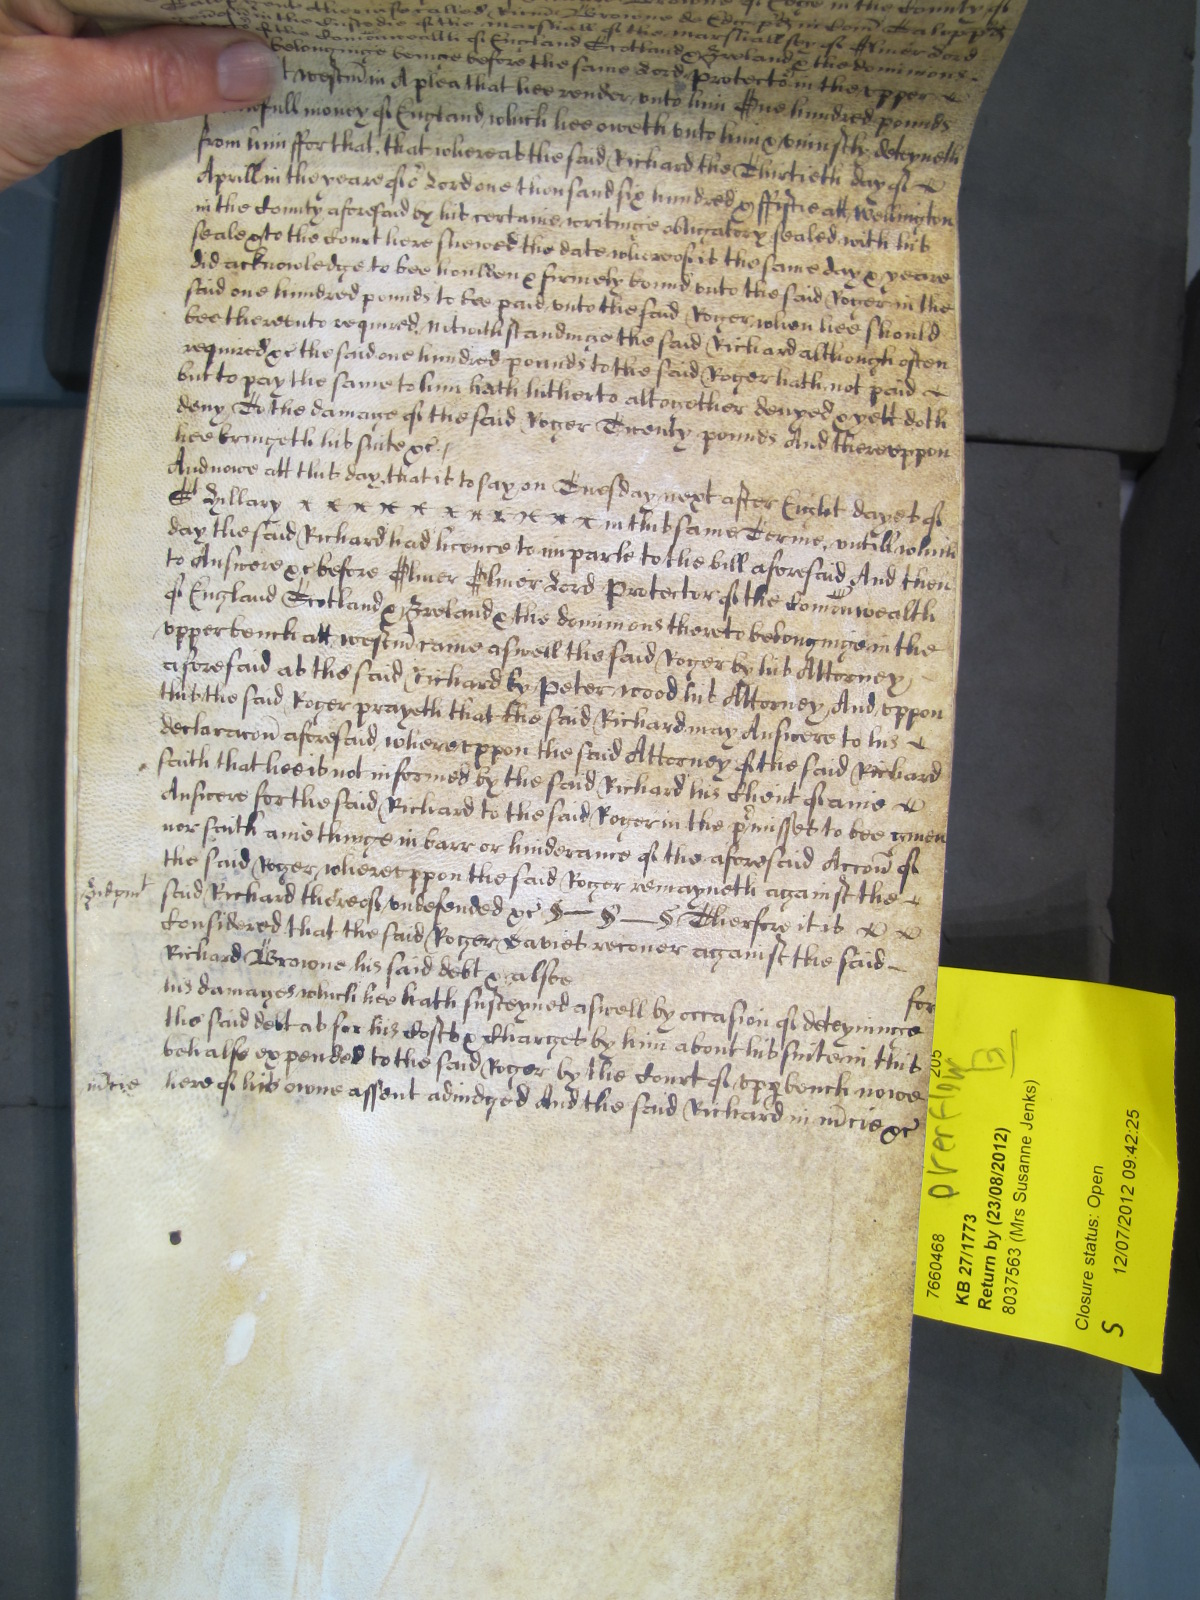 Richard Browne of
in the Custodie of the marshall of the marshallsey of Oliver Lord
of the Comonwealth of England Scotland & Ireland & the dominions
belonginge beinge before the same Lord Protector in the upper
at westm in A plea that hee render unto him One hundred pounds
lawfull money of England which hee oweth unto him & uniustly deteyneth
from him ffor that, that whereas the said Richard the Thirtieth day of
Aprill in the yeare of or Lord one thousand six hundred & ffiftie att Wellington
in the County aforesaid by his certaine writinge obligatory sealed with his
seale & to the Court here shewed the date whereof is the same day & yeare
did acknowledge to bee houlden & firmely bound unto the said Roger in the
said one hundred pounds to bee paid unto the said Roger when hee should
bee thereunto required, notwithstandinge the said Richard although often
required &c the said one hundred pounds to the said Roger hath not paid
but to pay the same to him hath hitherto altogether denyed & yett doth
deny To the damage of the said Roger Twenty pounds And thereuppon
hee bringeth his suite &c
And nowe att this day, that is to say on Tuesday next after Eight dayes of
St Hillary x x x x x x x x x x x in this same Terme, untill which
day the said Richard had licence to imparle to the bill aforesaid And then
to Answere &c before Oliver Oliver Lord Protector of the Comonwealth
of England Scotland & Ireland & the dominions thereto belonginge in the
upper bench att westm came aswell the said Roger by his Attorney
aforesaid as the said Richard by Peter wood his Attorney, And uppon
this the said Roger prayeth that the said Richard may Answere to his
declaracon aforesaid, whereuppon the said Attorney of the said Richard
saith that hee is not informed by the said Richard his Client of anie
Answere for the said Richard to the said Roger in the pmisses to bee given
nor saith anie thinge in barr or hinderance of the aforesaid Accon of
the said Roger, whereuppon the said Roger remayneth against the
Judgmt said Richard thereof undefended &c Therfore it is
Considered that the said Roger Davies recover against the said
Richard Browne his said debt & alsoe for
his damages which hee hath susteyned aswell by occasion of deteyninge
the said debt as for his Costs & Charges by him about his suite in this
behalfe expended to the said Roger by the Court of upp bench nowe
mcie here of his owne assent adiudged And the said Richard in mcie &c
205
overflow
B
7660468
KB 27/1773
Return by (23/08/2012)
8037563 (Mrs Susanne Jenks)
Closure status: Open
S 12/07/2012 09:42:25